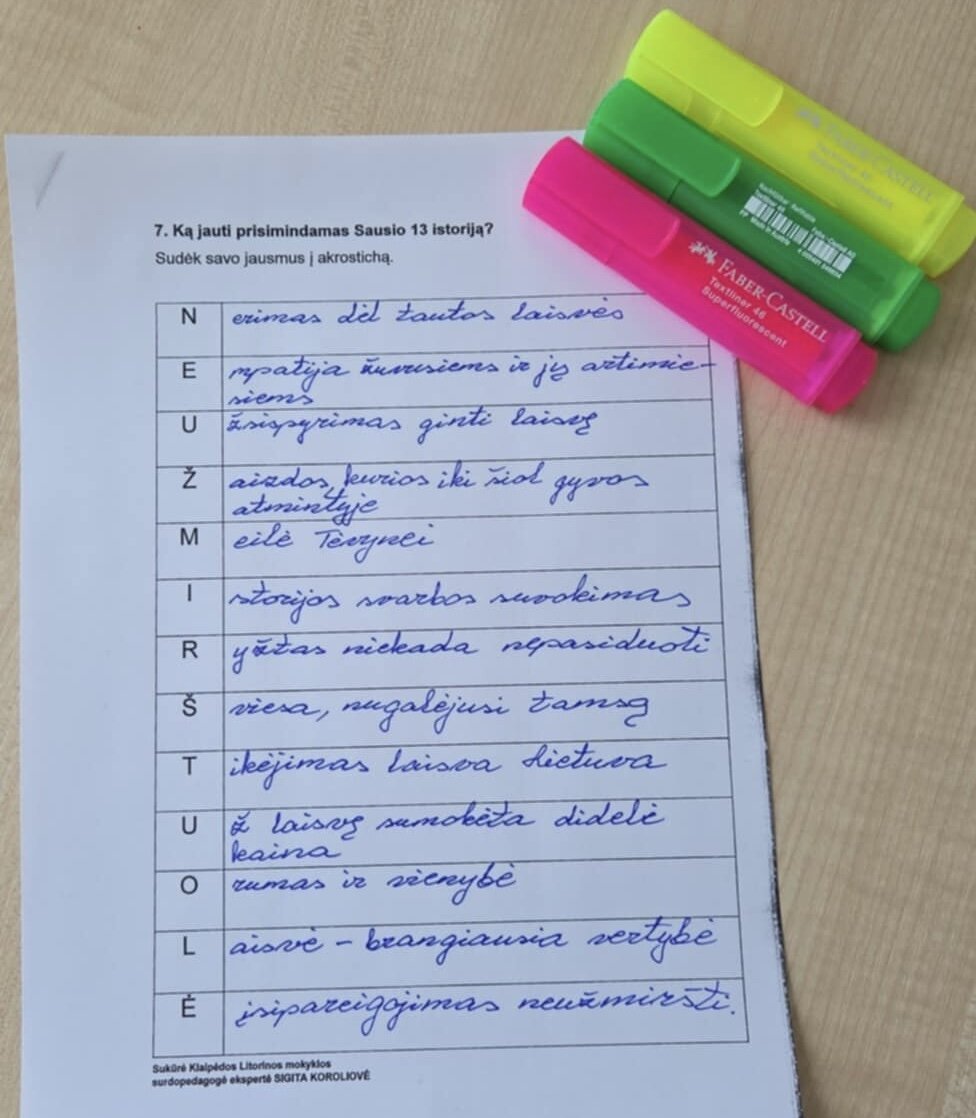 7. Ką jauti prisimindamas Sausio 13 istoriją?
Sudėk savo jausmus į akrostichą.
N erimas dėl tautos laisvės
E mpatija žuvusiems ir jų artimie-
siems
U žsispyrimas ginti laisvę
Ž aizdos, kurios iki šiol gyvos
atmintyje
M eilė Tėvynei
I storijos svarbos suvokimas
R yžtas niekada nepasiduoti
Š viesa, nugalėjusi tamsą
T ikėjimas laisva Lietuva
U ž laisvę sumokėta didelė
kaina
O rumas ir vienybė
L aisvė – brangiausia vertybė
Ė įsipareigojimas neužmiršti.
Sukūrė Klaipėdos Litorinos mokyklos
surdopedagogė ekspertė SIGITA KOROLIOVĖ
FABER-CASTELL
Textliner 46
Superfluorescent
Textliner 46
Faber-Castell AG
Made in Austria
FABER-CASTELL
Textliner 46
Superfluorescent